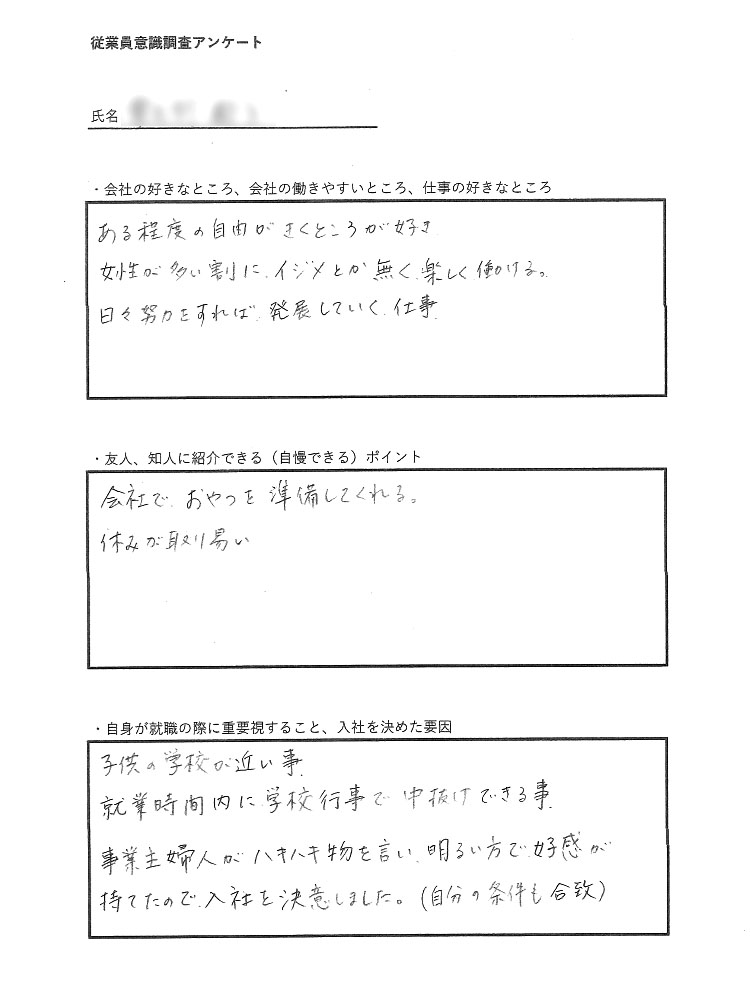 従業員意識調査アンケート
氏名
・会社の好きなところ、会社の働きやすいところ、仕事の好きなところ
ある程度の自由がきくところが好き
女性が多い割に、イジメとか無く、楽しく働ける。
日々努力をすれば、発展していく、仕事
・友人、知人に紹介できる（自慢できる）ポイント
会社で、おやつを準備してくれる。
休みが取り易い
・自身が就職の際に重要視すること、入社を決めた要因
子供の学校が近い事
就業時間内に学校行事で中抜けできる事
事業主婦人がハキハキ物を言い、明るい方で、好感が
持てたので、入社を決意しました。（自分の条件も合致）